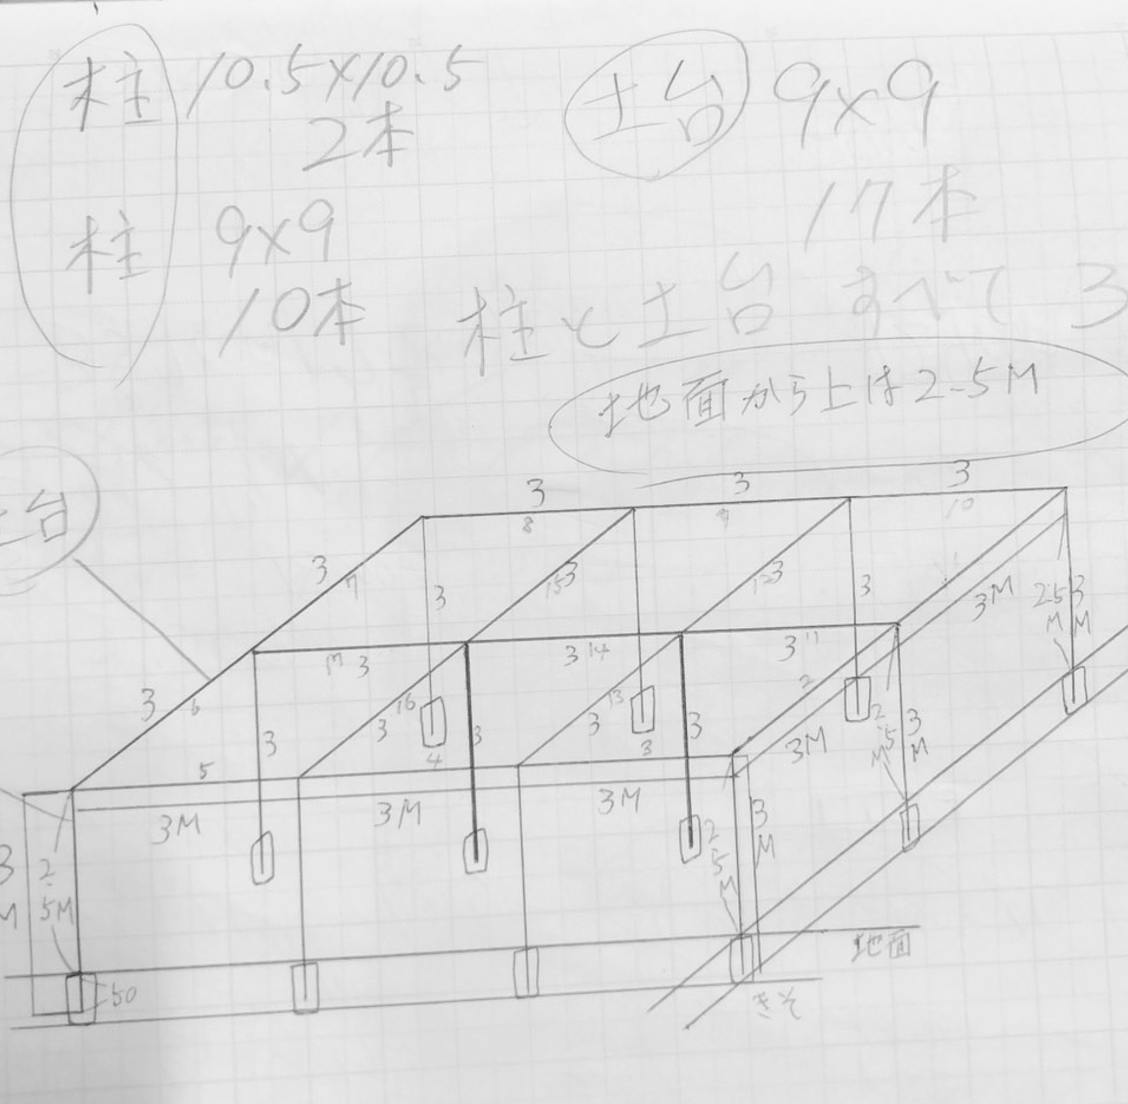 柱 10.5×10.5
2本
土台 9×9
17本
柱 9×9
10本
柱と土台 すべて 3
地面から上は2.5M
土台
3 3 3
8 9 10
3 7 3 15 3 12 3 3 3M 2.5M 3M
17 3 3 14 3 11
3 6 3 3 16 3 13 3 2 3M 2.5M 3M
5 4 3
3M 3M 3M
3M 2.5M 2.5M 3M
地面
50
きそ